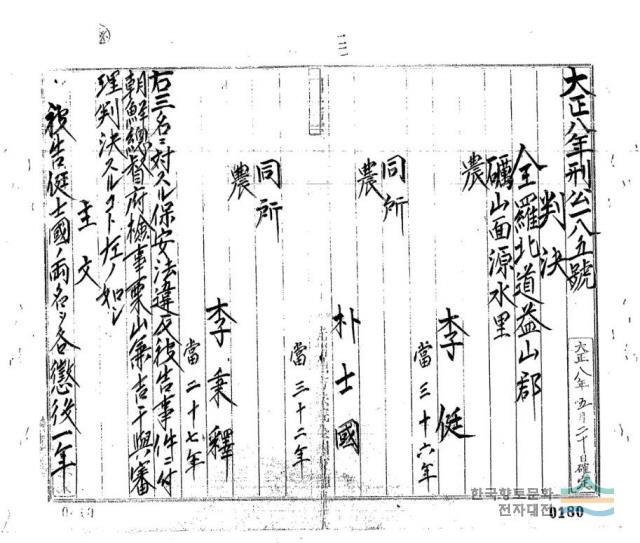 大正八年刑公一八五號
判決
全羅北道益山郡
礪山面源水里
農
李侹
當三十六年
同所
農
朴士國
當三十二年
同所
農
李秉釋
當二十七年
右三名ニ対スル保安法違反被告事件ニ付
朝鮮總督府檢事栗山兼吉干與審
理判決スルコト左ノ如シ
主文
被告侹士國ノ両名ヲ各懲役一年
大正八年五月二十日確定
한국향토문화
전자대전
0180